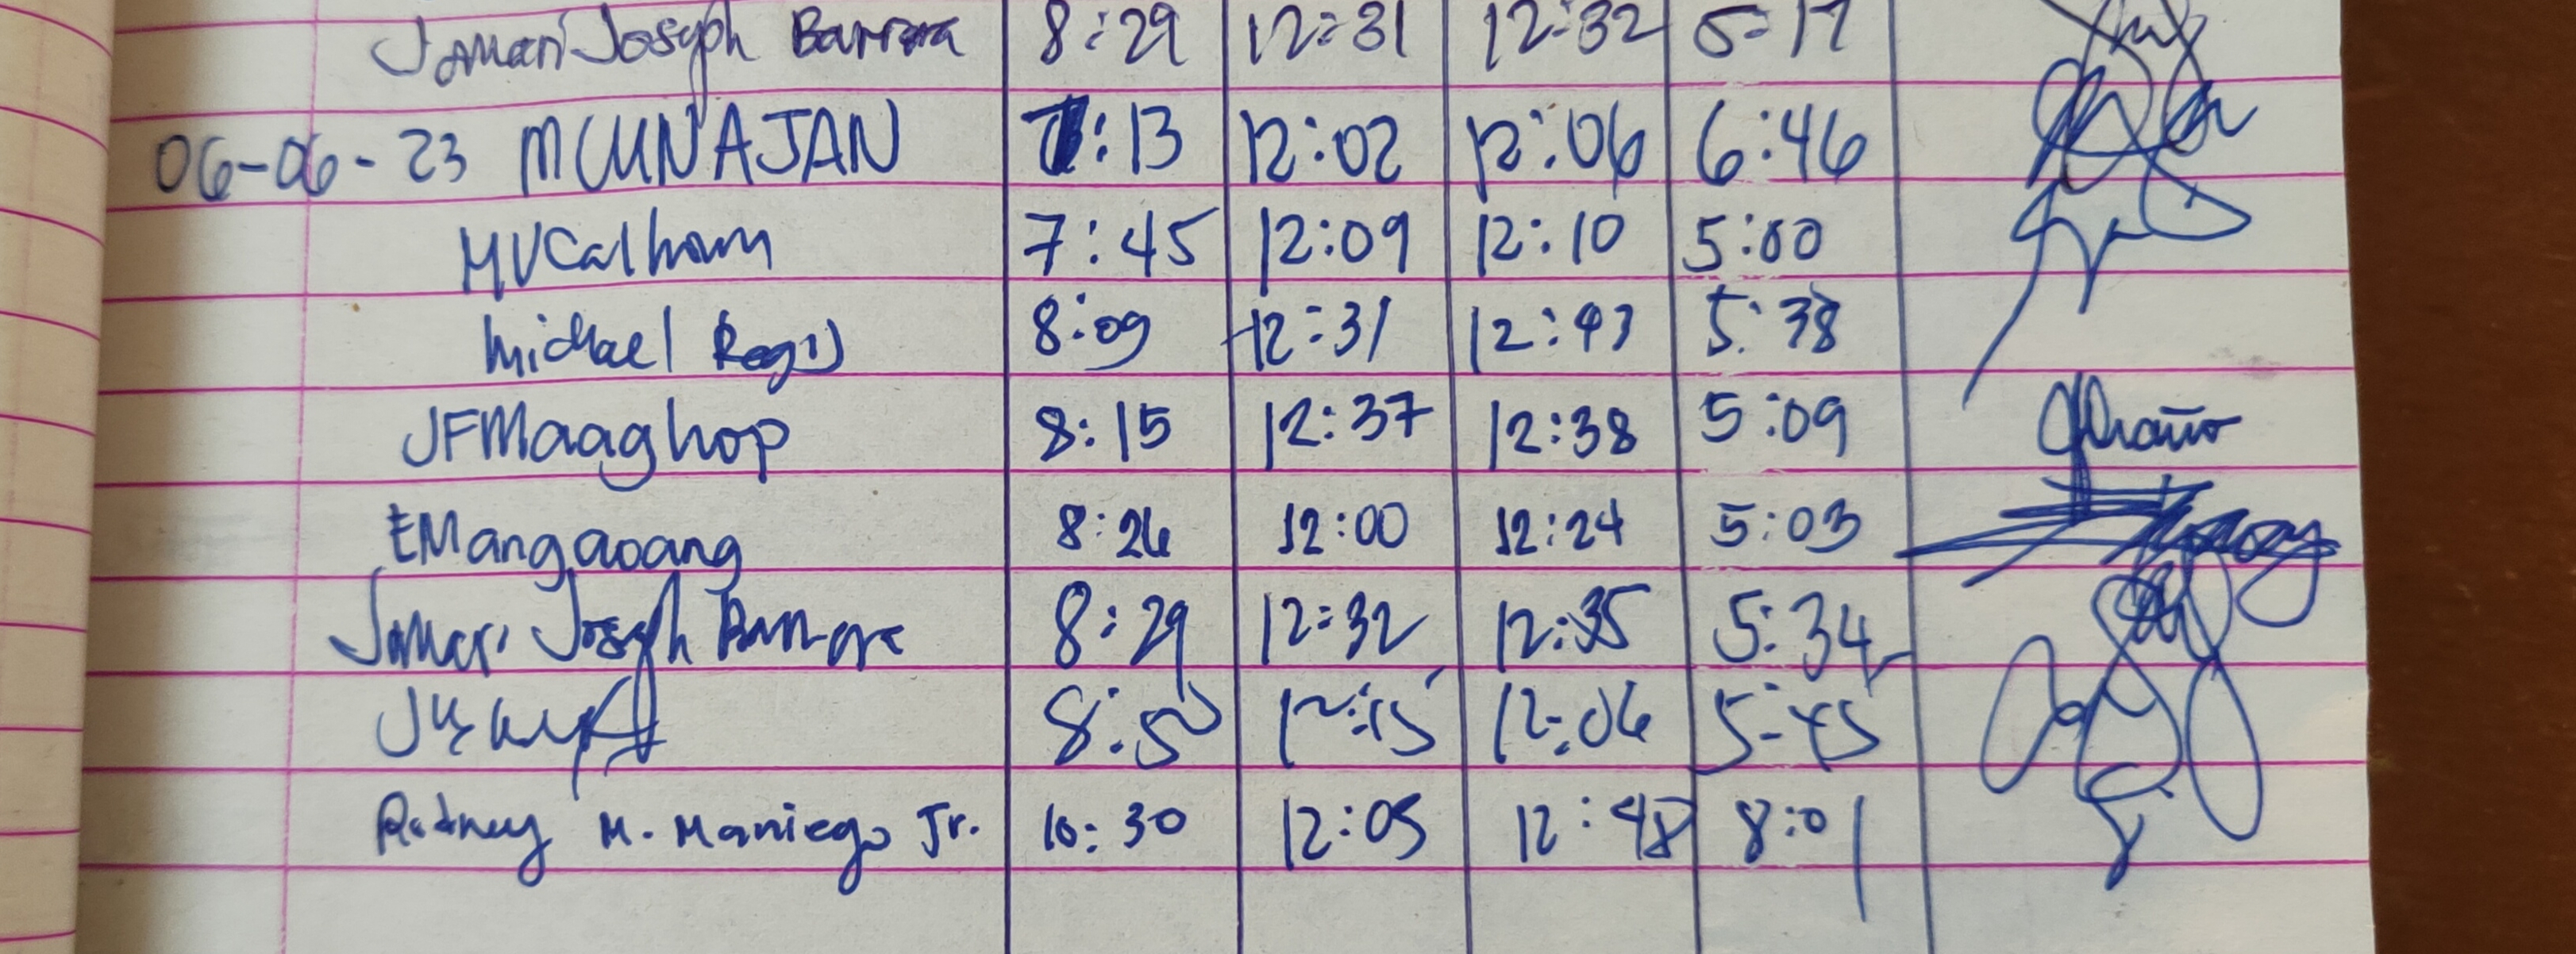 Jomari Joseph Barrera 8:29 12:31 12:32 5:17
06-06-23 MCUNAJAN 7:13 12:02 12:06 6:46
MVCalham 7:45 12:09 12:10 5:00
Michael 8:09 12:31 12:43 5:38
JFMaaghop 8:15 12:37 12:38 5:09
EMangaoang 8:26 12:00 12:24 5:03
Jomari Joseph Barrera 8:29 12:32 12:35 5:34
12:06 5:45
Rodney M. Maniego Jr. 10:30 12:05 12:48 8:01